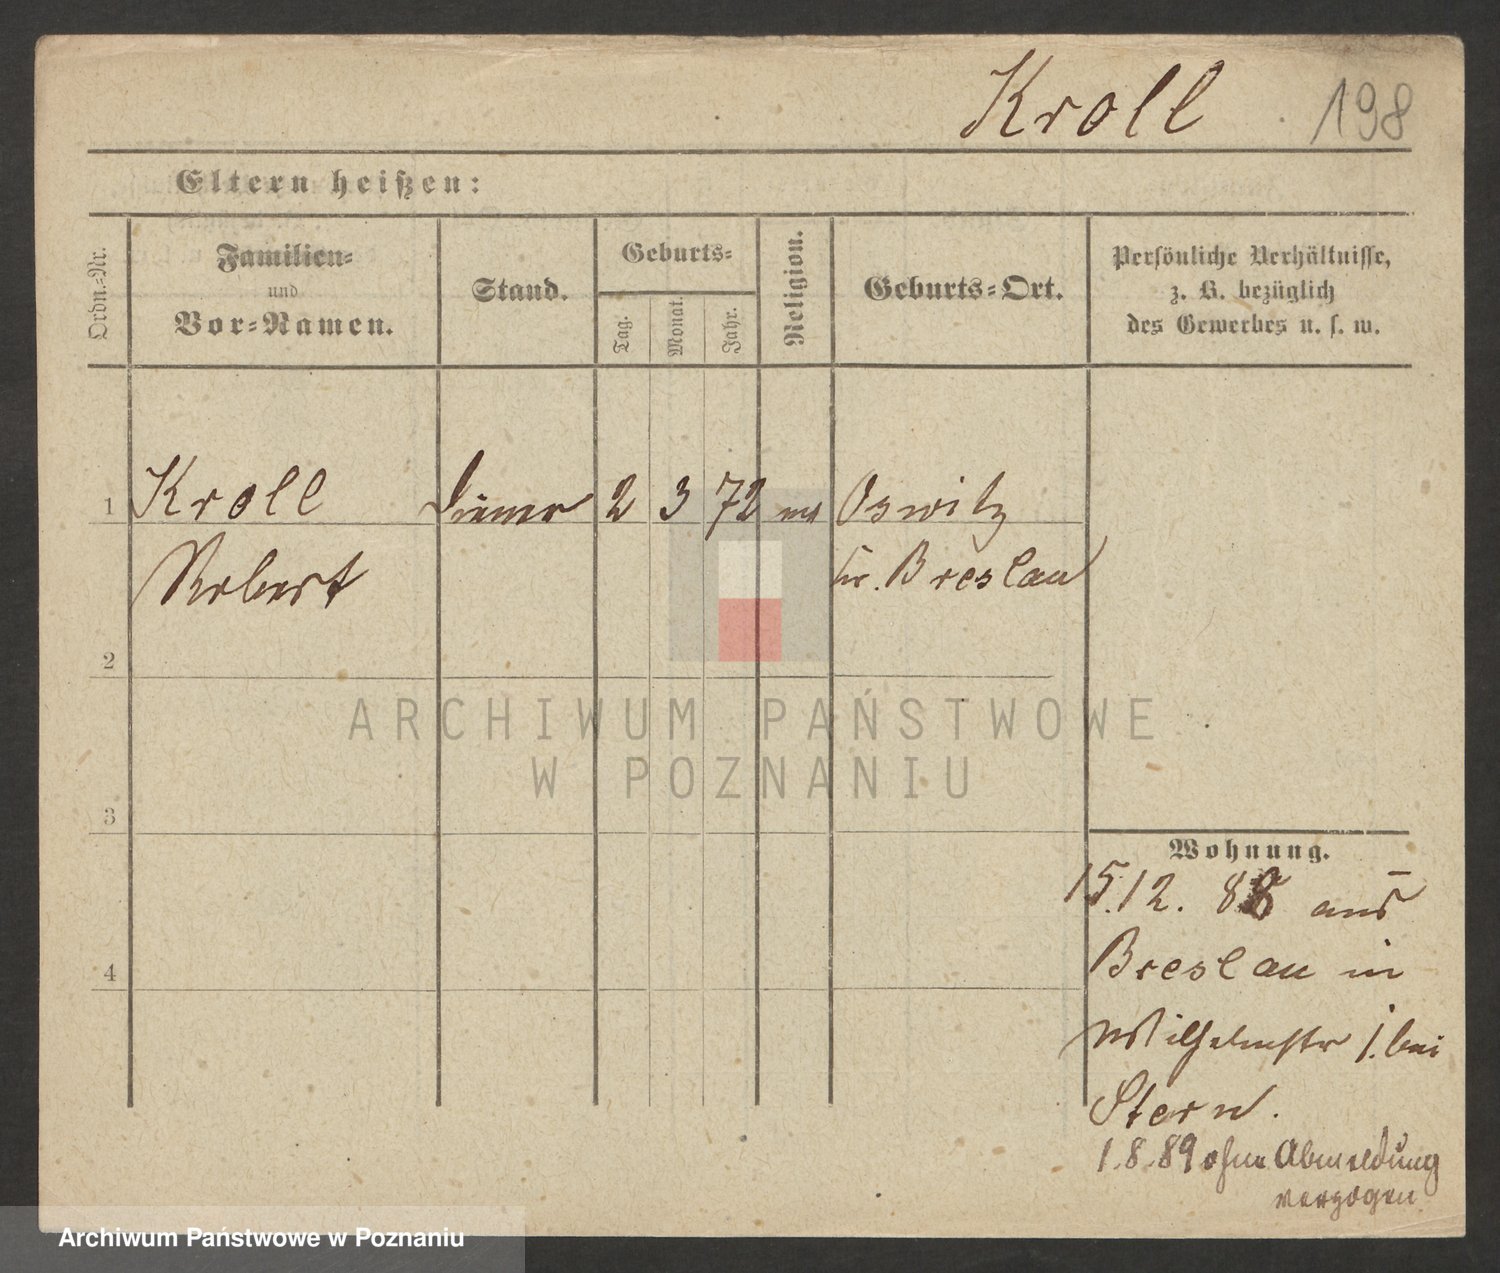 Kroll 198
Eltern heißen:
Ordn.-Nr.
Familien-
und
Vor-Namen.
Stand.
Geburts-
Tag.
Monat.
Jahr.
Religion.
Geburts-Ort.
Persönliche Verhältnisse,
z. B. bezüglich
des Gewerbes u. s. w.
1 Kroll Diener 2 3 72 Oswitz
Robert Kr. Breslau
2
3
4
ARCHIWUM PAŃSTWOWE
W POZNANIU
Wohnung.
15.12. 88 aus
Breslau in
Wilhelmstr 1. bei
Stern.
1.8.89 ohne Abmeldung
verzogen
Archiwum Państwowe w Poznaniu